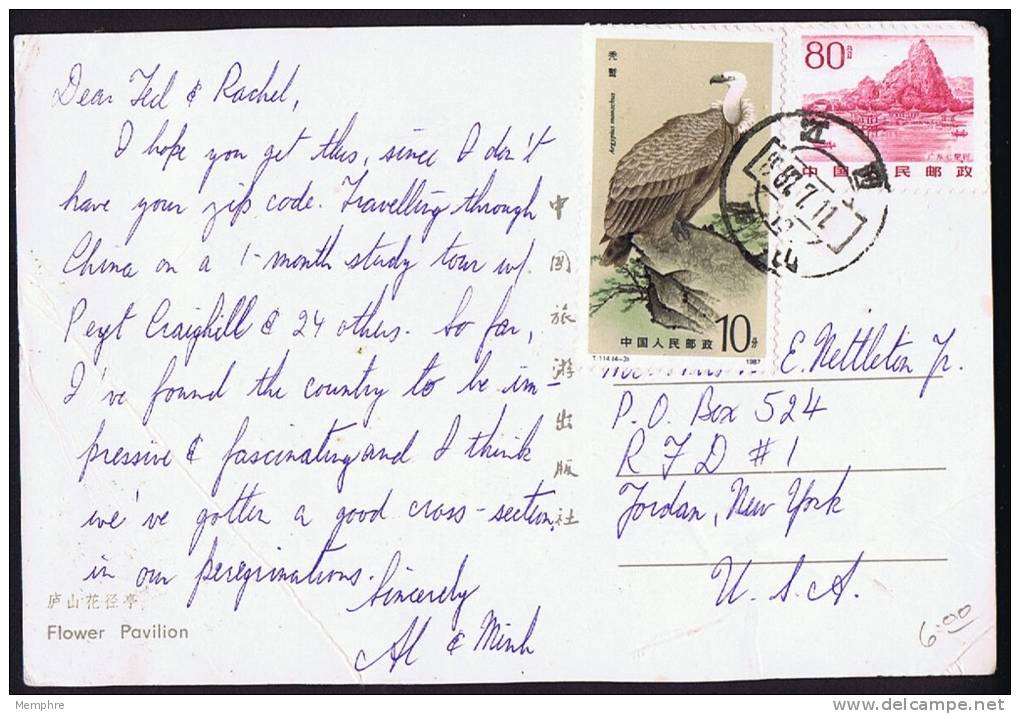 Dear Ted & Rachel,
I hope you get this, since I don't
have your zip code. Travelling through
China on a 1-month study tour w/
Peyt Craighill & 24 others. So far,
I've found the country to be im-
pressive & fascinating and I think
we've gotten a good cross-section
in our peregrinations.
Sincerely
Al & Minh
庐山花径亭
Flower Pavilion
中国旅游出版社
秃鹫
10分
中国人民邮政
T.114.(4-3)
1987
80分
中国人民邮政
江西
庐山
E. Nettleton Jr.
P.O. Box 524
RFD #1
Jordan, New York
U.S.A.
6.00
Memphre
delcampe.net